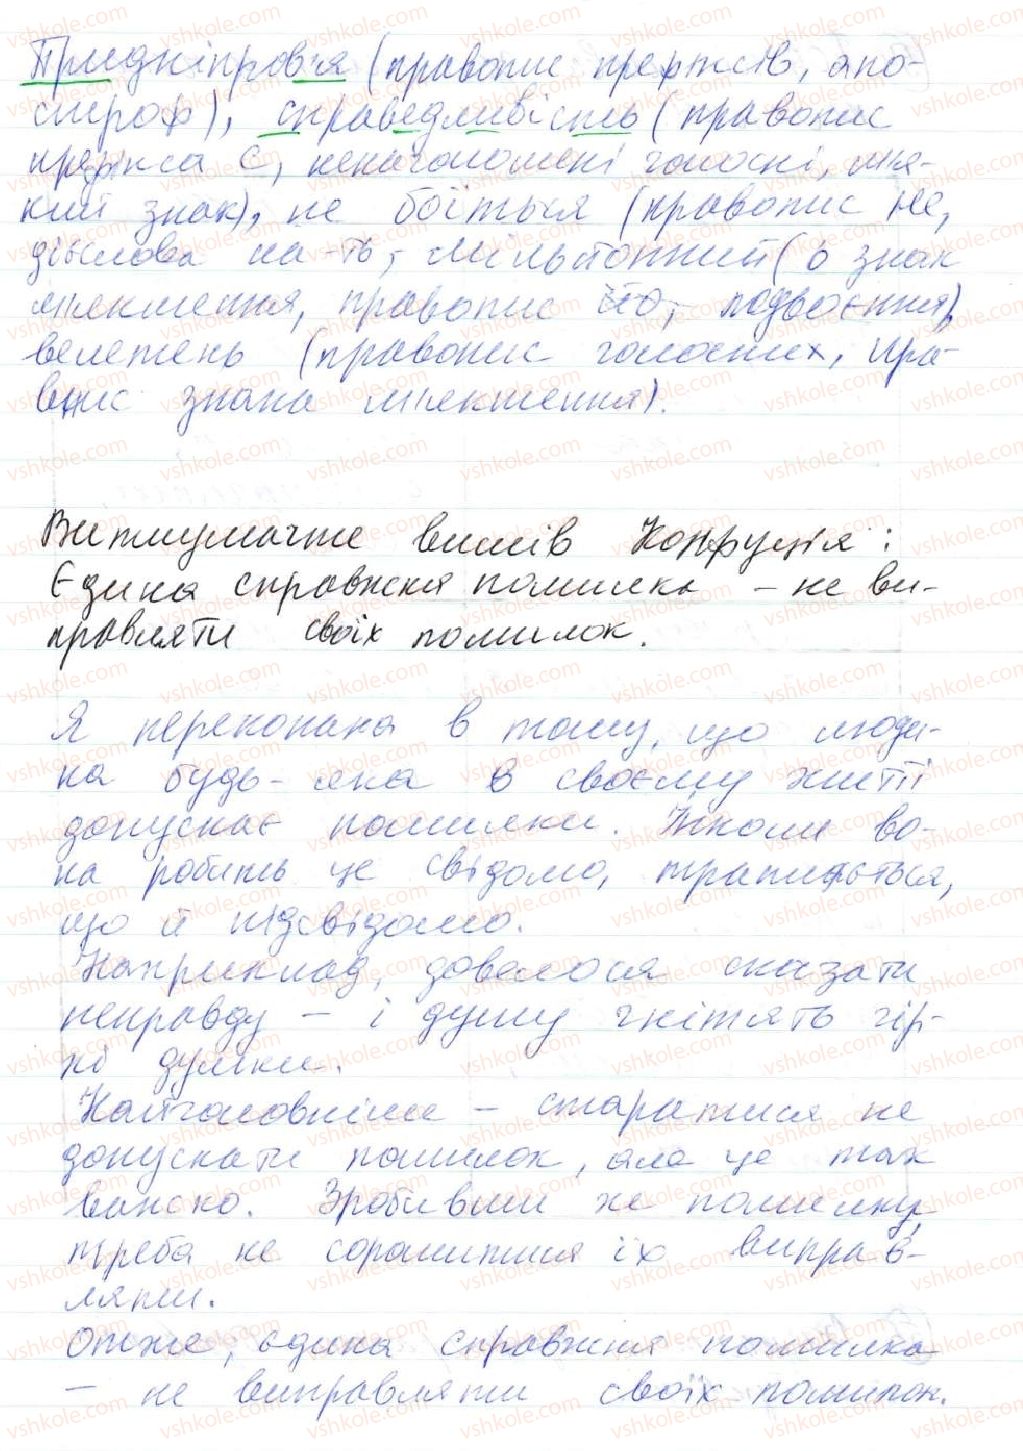 Придніпров'я (правопис префіксів, апо-
строф), справедливість (правопис
префікса С, ненаголошені голосні, м'я-
кий знак), не боїться (правопис не,
дієслова на -ть, мільйонний (ь знак
м'якшення, правопис йо, подвоєння),
велетень (правопис голосних, пра-
вопис знака м'якшення).
Витлумачте вислів Конфуція:
Єдина справжня помилка – не ви-
правляти своїх помилок.
Я переконана в тому, що люди-
на будь-яка в своєму житті
допускає помилки. Інколи во-
на робить це свідомо, трапляється,
що й підсвідомо.
Наприклад, довелося сказати
неправду – і душу гнітять гір-
кі думки.
Найголовніше – старатися не
допускати помилок, але це так
важко. Зробивши же помилку,
треба не соромитися їх виправ-
ляти.
Отже, єдина справжня помилка
– не виправляти своїх помилок.